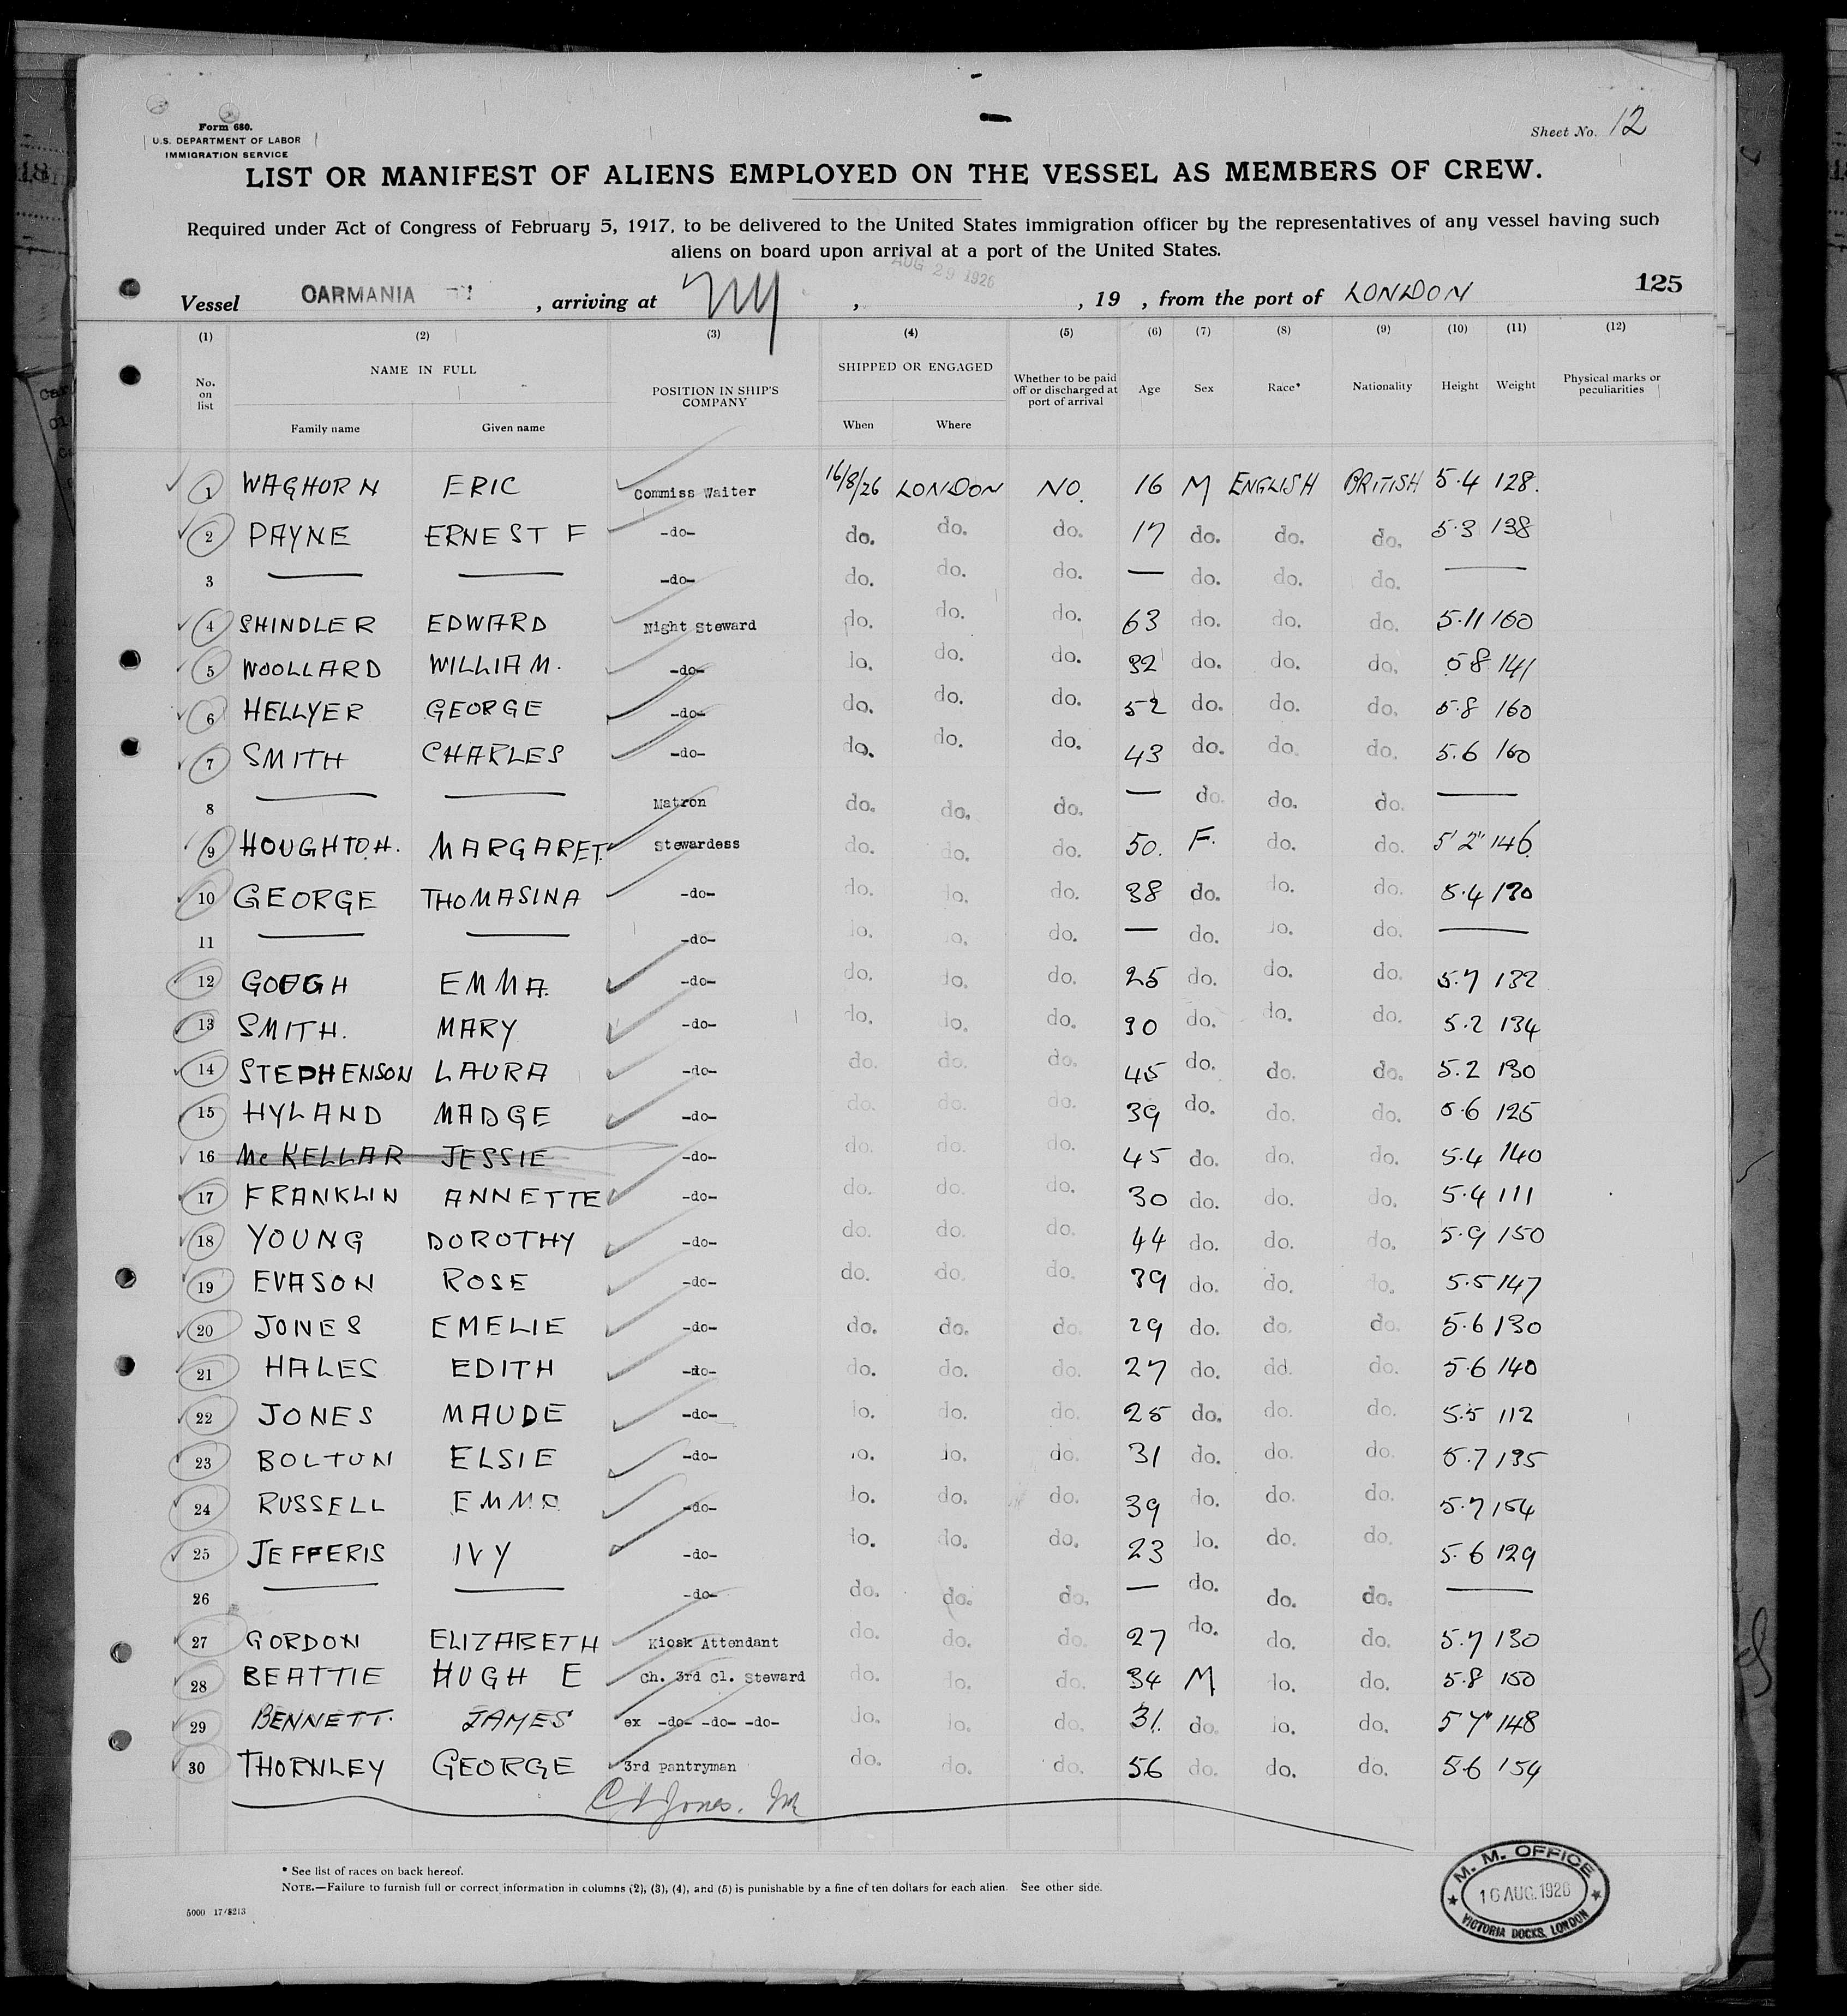 Form 680.
U.S. DEPARTMENT OF LABOR
IMMIGRATION SERVICE
Sheet No. 12
LIST OR MANIFEST OF ALIENS EMPLOYED ON THE VESSEL AS MEMBERS OF CREW.
Required under Act of Congress of February 5, 1917, to be delivered to the United States immigration officer by the representatives of any vessel having such
aliens on board upon arrival at a port of the United States.
AUG 29 1926
125
Vessel CARMANIA, arriving at NY, , 19 , from the port of LONDON
(1) (2) (3) (4) (5) (6) (7) (8) (9) (10) (11) (12)
No. on list NAME IN FULL POSITION IN SHIP'S COMPANY SHIPPED OR ENGAGED Whether to be paid off or discharged at port of arrival Age Sex Race* Nationality Height Weight Physical marks or peculiarities
Family name Given name When Where
1 WAGHORN ERIC Commiss Waiter 16/8/26 LONDON NO. 16 M ENGLISH BRITISH 5.4 128.
2 PAYNE ERNEST F -do- do. do. do. 17 do. do. do. 5.3 138
3 — — -do- do. do. do. — do. do. do. —
4 SHINDLER EDWARD Night Steward do. do. do. 63 do. do. do. 5.11 160
5 WOOLLARD WILLIAM. -do- do. do. do. 32 do. do. do. 5 8 141
6 HELLYER GEORGE -do- do. do. do. 52 do. do. do. 5.8 160
7 SMITH CHARLES -do- do. do. do. 43 do. do. do. 5.6 160
8 — — Matron do. do. do. — do. do. do. —
9 HOUGHTON. MARGARET. Stewardess do. do. do. 50. F. do. do. 5' 2" 146.
10 GEORGE THOMASINA -do- do. do. do. 38 do. do. do. 5.4 130
11 — — -do- do. do. do. — do. do. do. —
12 GOUGH EMMA. -do- do. do. do. 25 do. do. do. 5.7 132
13 SMITH. MARY -do- do. do. do. 30 do. do. do. 5.2 134
14 STEPHENSON LAURA -do- do. do. do. 45 do. do. do. 5.2 130
15 HYLAND MADGE -do- do. do. do. 39 do. do. do. 5.6 125
16 McKELLAR JESSIE -do- do. do. do. 45 do. do. do. 5.4 140
17 FRANKLIN ANNETTE -do- do. do. do. 30 do. do. do. 5.4 111
18 YOUNG DOROTHY -do- do. do. do. 44 do. do. do. 5.9 150
19 EVASON ROSE -do- do. do. do. 39 do. do. do. 5.5 147
20 JONES EMELIE -do- do. do. do. 29 do. do. do. 5.6 130
21 HALES EDITH -do- do. do. do. 27 do. do. do. 5.6 140
22 JONES MAUDE -do- do. do. do. 25 do. do. do. 5.5 112
23 BOLTON ELSIE -do- do. do. do. 31 do. do. do. 5.7 135
24 RUSSELL EMMA -do- do. do. do. 39 do. do. do. 5.7 154
25 JEFFERIS IVY -do- do. do. do. 23 do. do. do. 5.6 129
26 — — -do- do. do. do. — do. do. do. —
27 GORDON ELIZABETH Kiosk Attendant do. do. do. 27 do. do. do. 5.7 130
28 BEATTIE HUGH E Ch. 3rd Cl. Steward do. do. do. 34 M do. do. 5.8 150
29 BENNETT. JAMES ex -do- -do- -do- do. do. do. 31. do. do. do. 5 7" 148
30 THORNLEY GEORGE 3rd Pantryman do. do. do. 56 do. do. do. 5.6 154
Jones.
* See list of races on back hereof.
NOTE.—Failure to furnish full or correct information in columns (2), (3), (4), and (5) is punishable by a fine of ten dollars for each alien. See other side.
5000 17/8213
M. M. OFFICE
16 AUG. 1926
VICTORIA DOCKS, LONDON